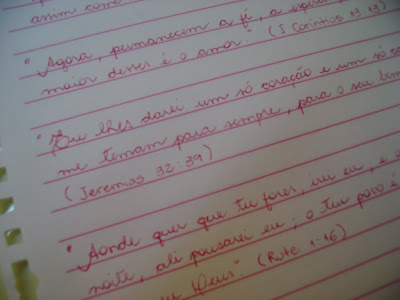 assim como
"Agora, permanecem a fé, a espera
maior desses é o amor." (I Coríntios 13.13)
"Eu lhes darei um só coração e um só ca
me temam para sempre, para o seu bem
(Jeremias 32:39)
"Aonde quer que tu fores, irei eu; e o
noite, ali pousarei eu; o teu povo é
eu Deus". (Rute 1:16)